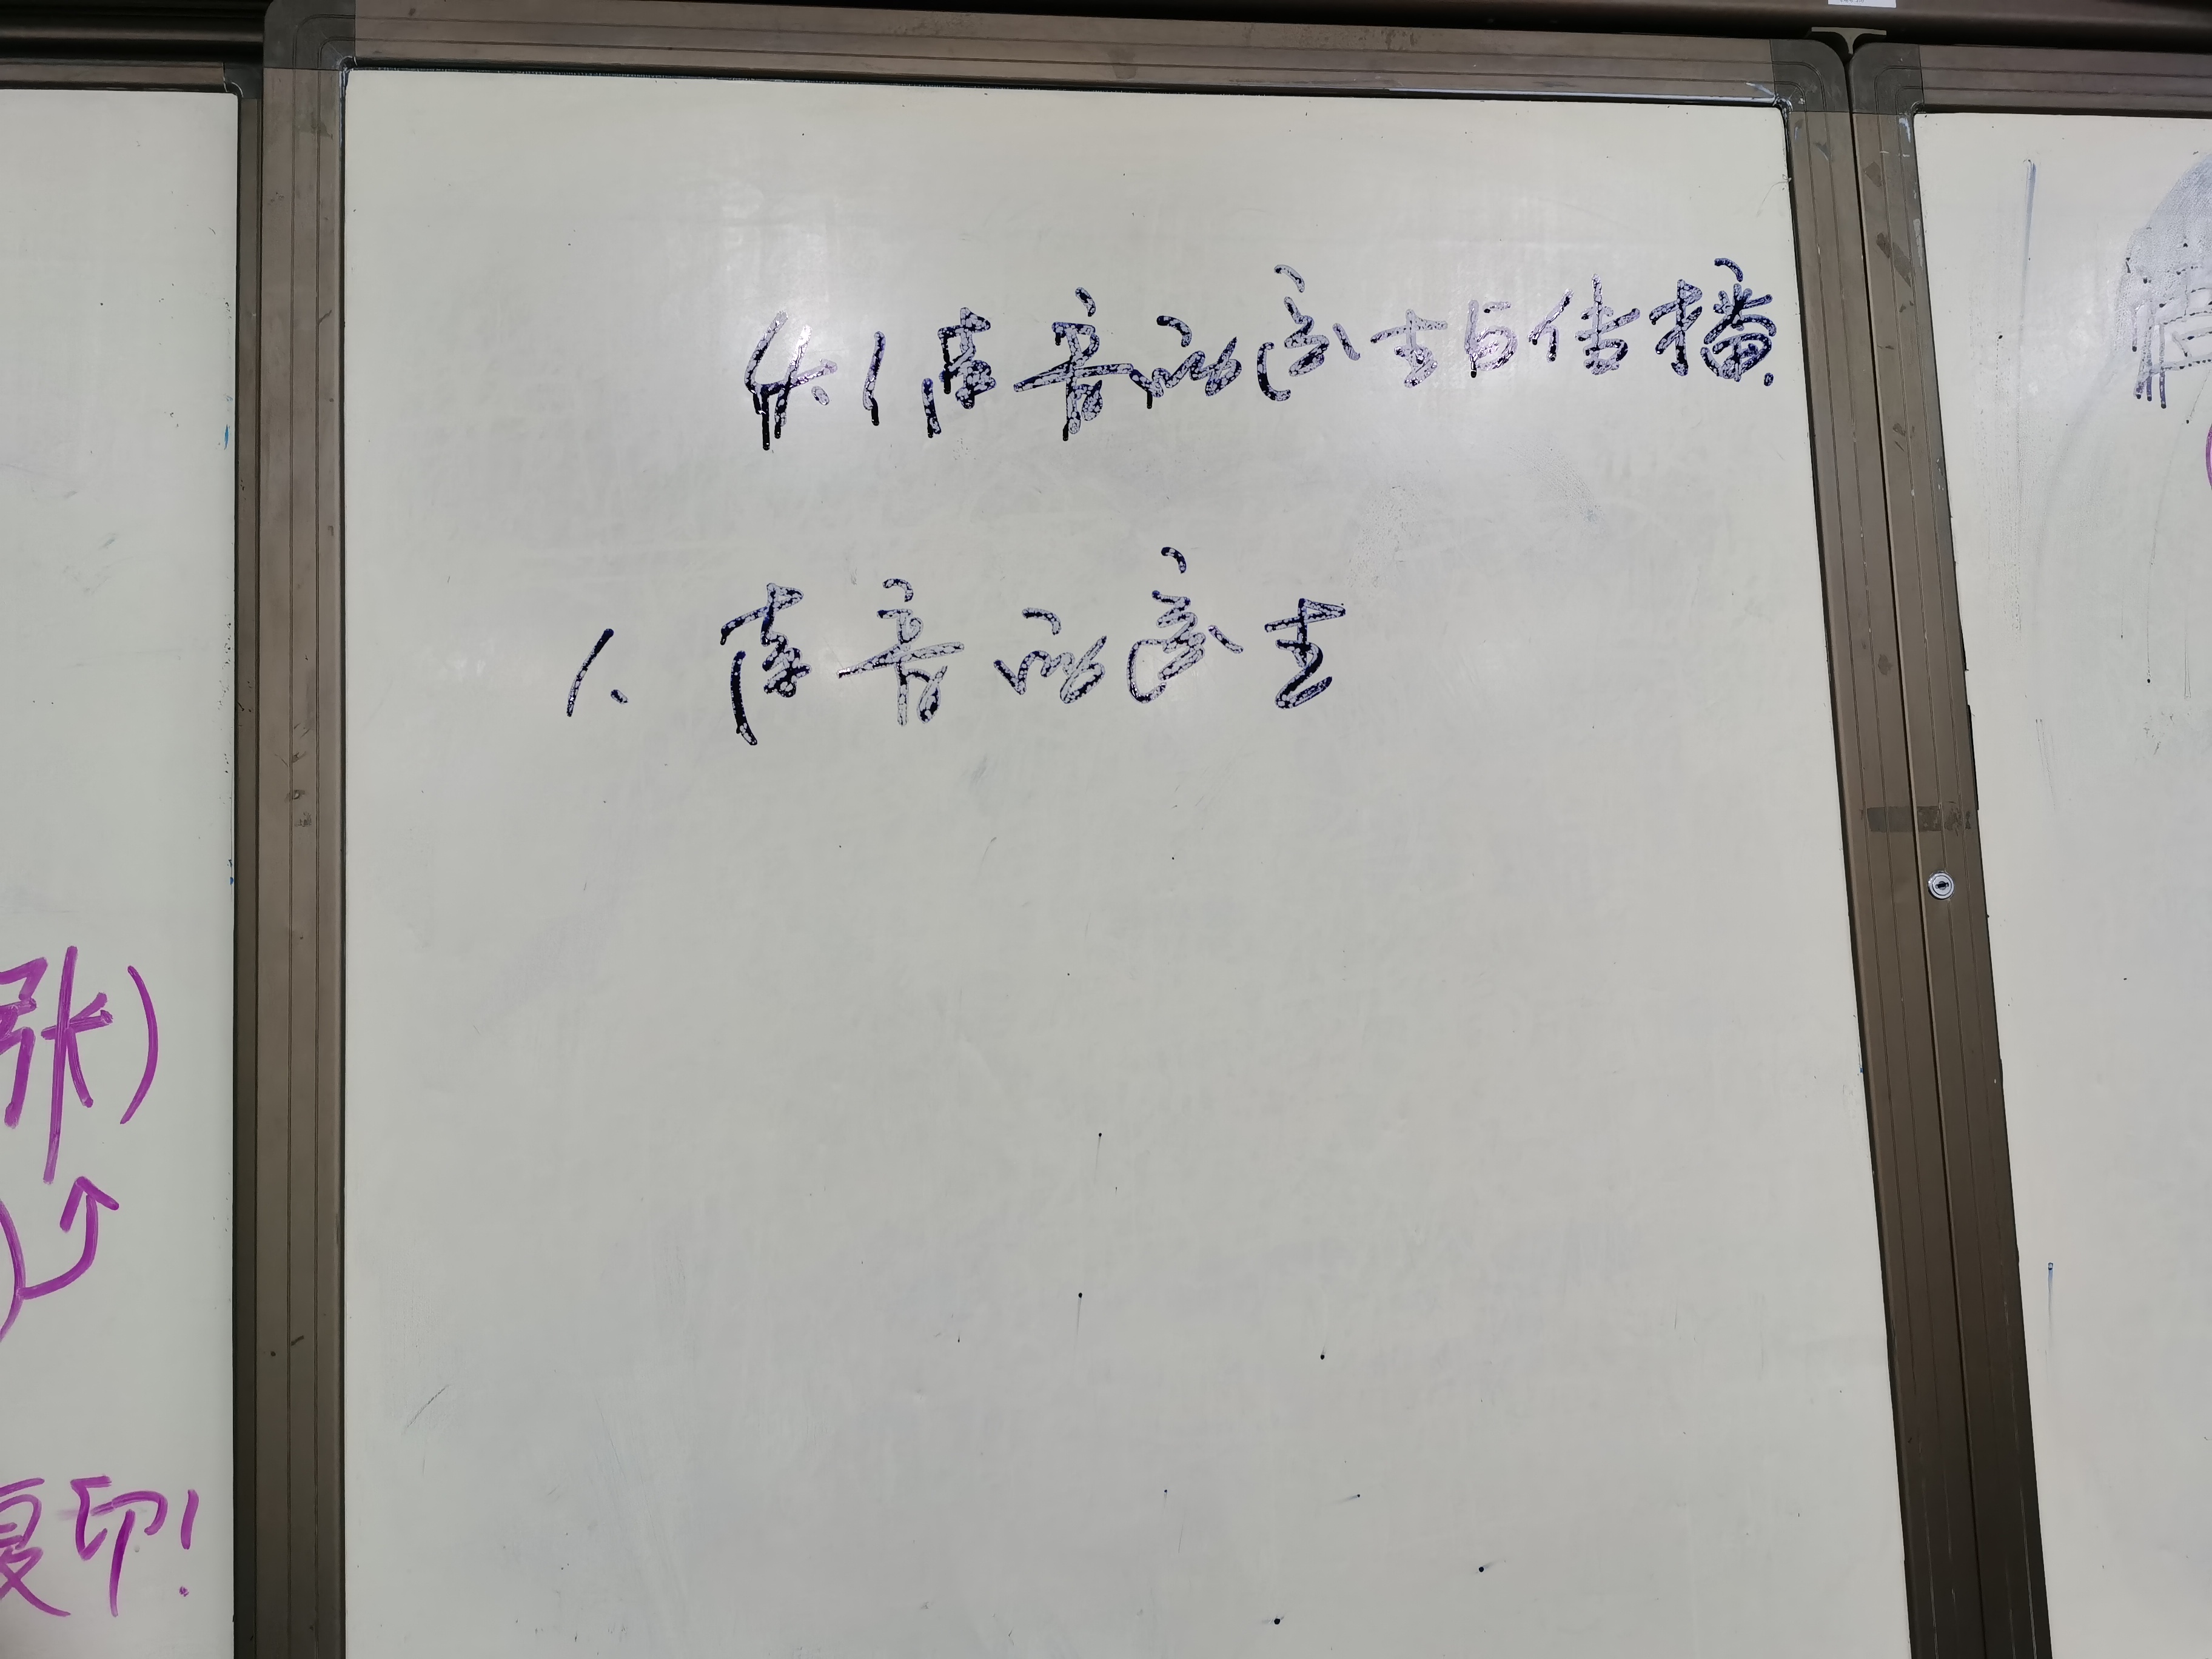 4.1 声音的产生与传播
1. 声音的产生
张)
复印!